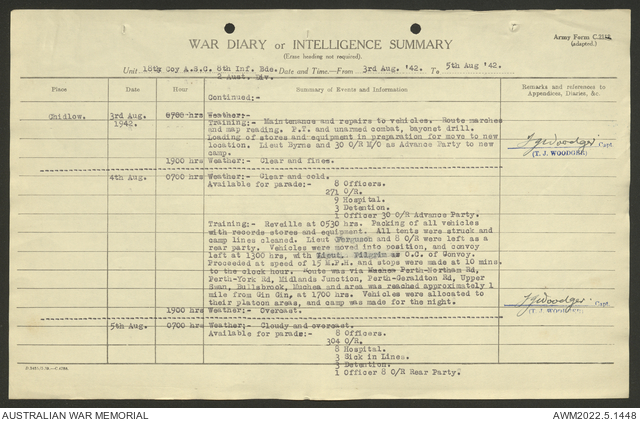 Army Form C.2118.
(adapted.)
WAR DIARY or INTELLIGENCE SUMMARY
(Erase heading not required).
Unit 18th Coy A.S.C. 8th Inf. Bde. Date and Time.—From 3rd Aug. '42. To 5th Aug '42.
2 Aust. Div.
Place Date Hour Summary of Events and Information Remarks and references to Appendices, Diaries, &c.
Continued:-
Chidlow. 3rd Aug. 0700 hrs Weather:-
1942. Training:- Maintenance and repairs to vehicles. Route marches
and map reading. P.T. and unarmed combat, bayonet drill.
Loading of stores and equipment in preparation for move to new
location. Lieut Byrne and 30 O/R M/O as Advance Party to new
camp.
TJWoodger Capt.
(T. J. WOODGER)
1900 hrs Weather:- Clear and fines.
4th Aug. 0700 hrs Weather:- Clear and cold.
Available for parade:- 8 Officers.
271 O/R.
9 Hospital.
3 Detention.
1 Officer 30 O/R Advance Party.
Training:- Reveille at 0530 hrs. Packing of all vehicles
with records stores and equipment. All tents were struck and
camp lines cleaned. Lieut Ferguson and 8 O/R were left as a
rear party. Vehicles were moved into position, and convoy
left at 1300 hrs, with Lieut. Pilgrim as O.C. of Convoy.
Proceeded at speed of 15 M.P.H. and stops were made at 10 mins
to the clock hour. Route was via Perth-Northam Rd,
Perth-York Rd, Midlands Junction, Perth-Geraldton Rd, Upper
Swan, Bullsbrook, Muchea and area was reached approximately 1
mile from Gin Gin, at 1700 hrs. Vehicles were allocated to
their platoon areas, and camp was made for the night.
TJWoodger Capt.
(T. J. WOODGER)
1900 hrs Weather:- Overcast.
5th Aug. 0700 hrs Weather:- Cloudy and overcast.
Available for parade:- 8 Officers.
304 O/R.
8 Hospital.
3 Sick in Lines.
3 Detention.
1 Officer 8 O/R Rear Party.
AUSTRALIAN WAR MEMORIAL
AWM2022.5.1448